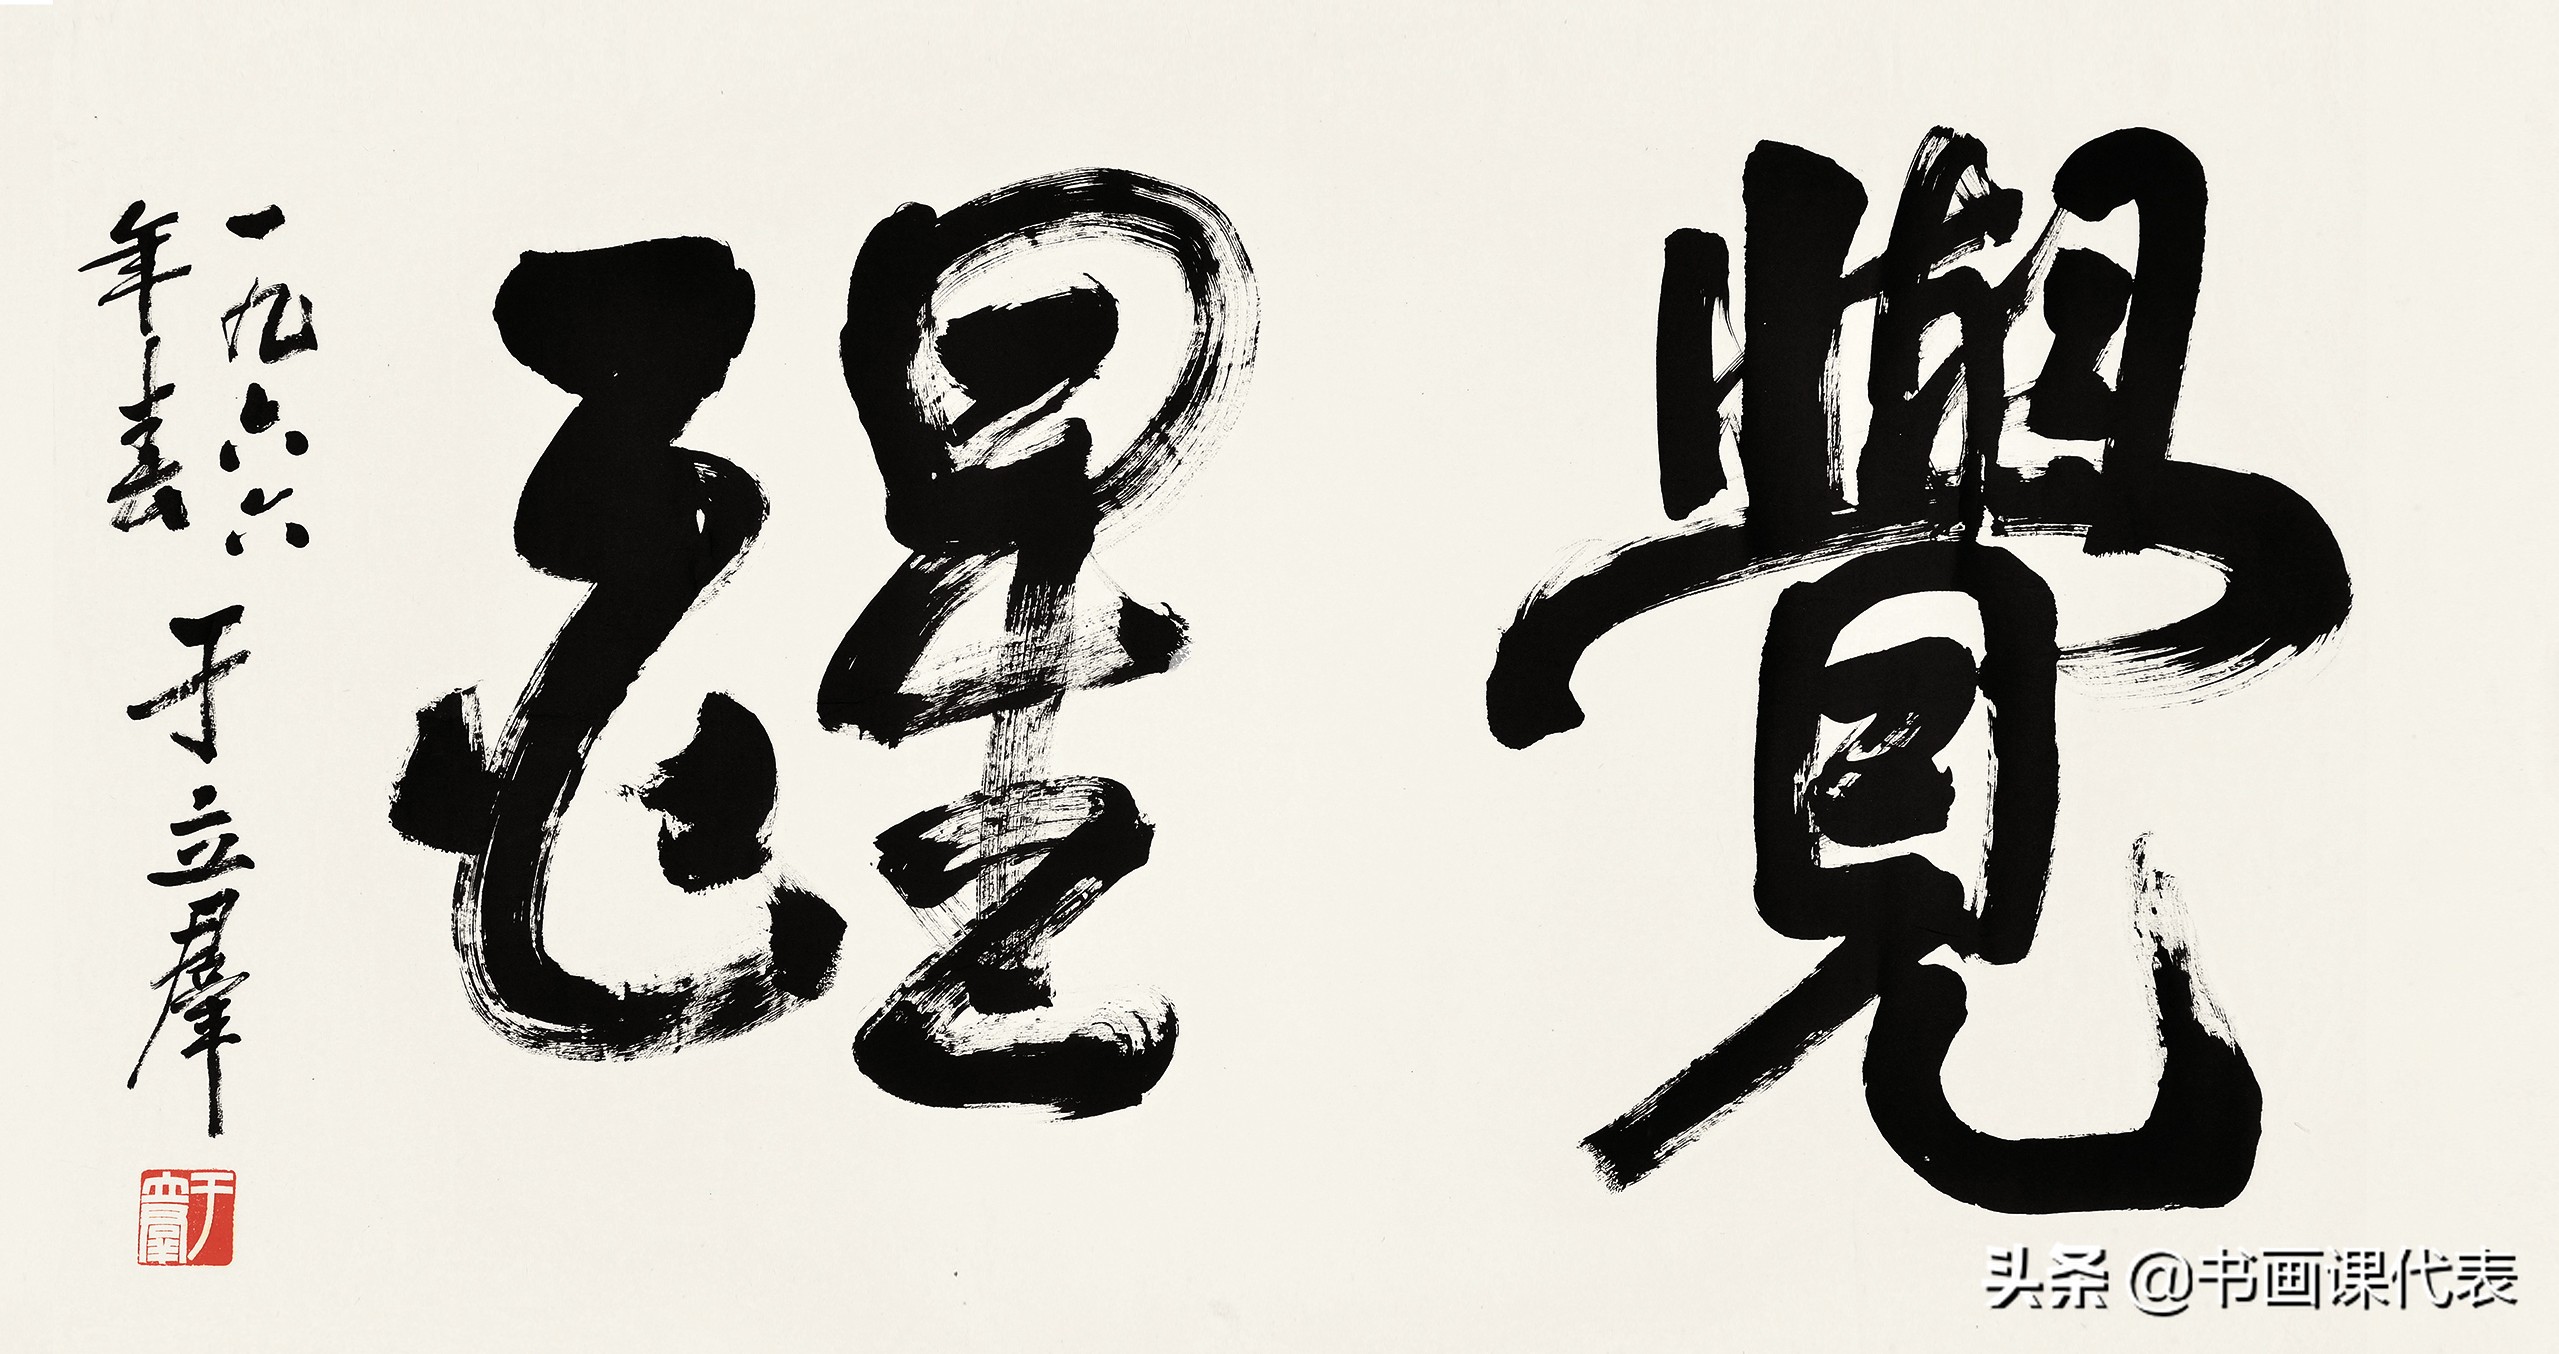 覺
一九六六
年春 于立羣
于立羣
头条 @书画课代表